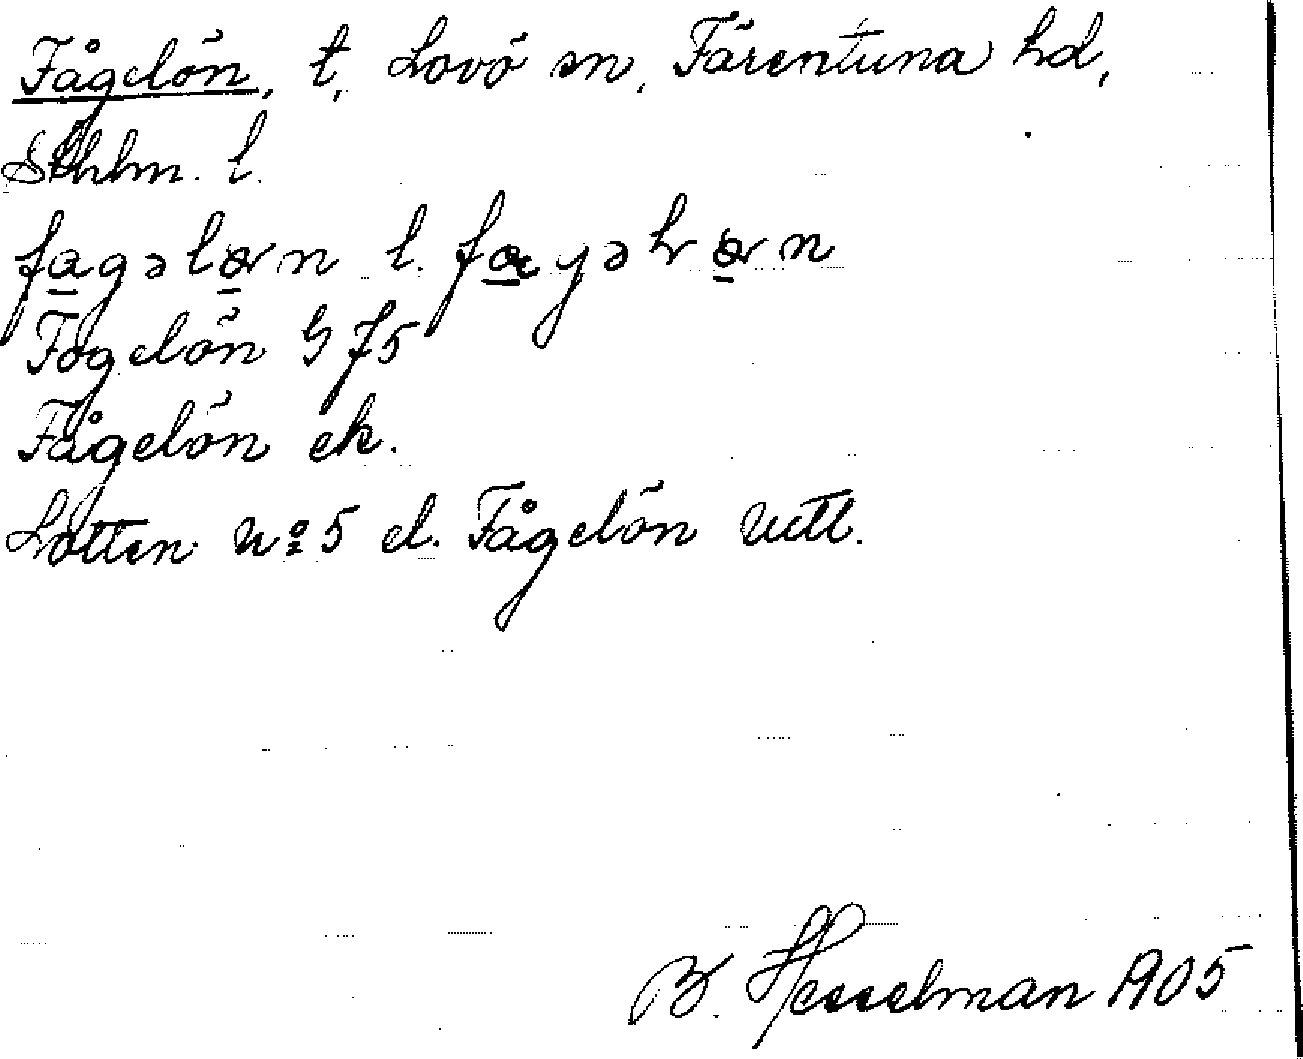 Fågelön, t, Lovö sn, Färentuna hd,
Sthlm. l.
fagəlөn l. fayəlөn
Fogelön G f5
Fågelön ek.
Lotten No 5 el. Fågelön Uttl.
B. Hesselman 1905